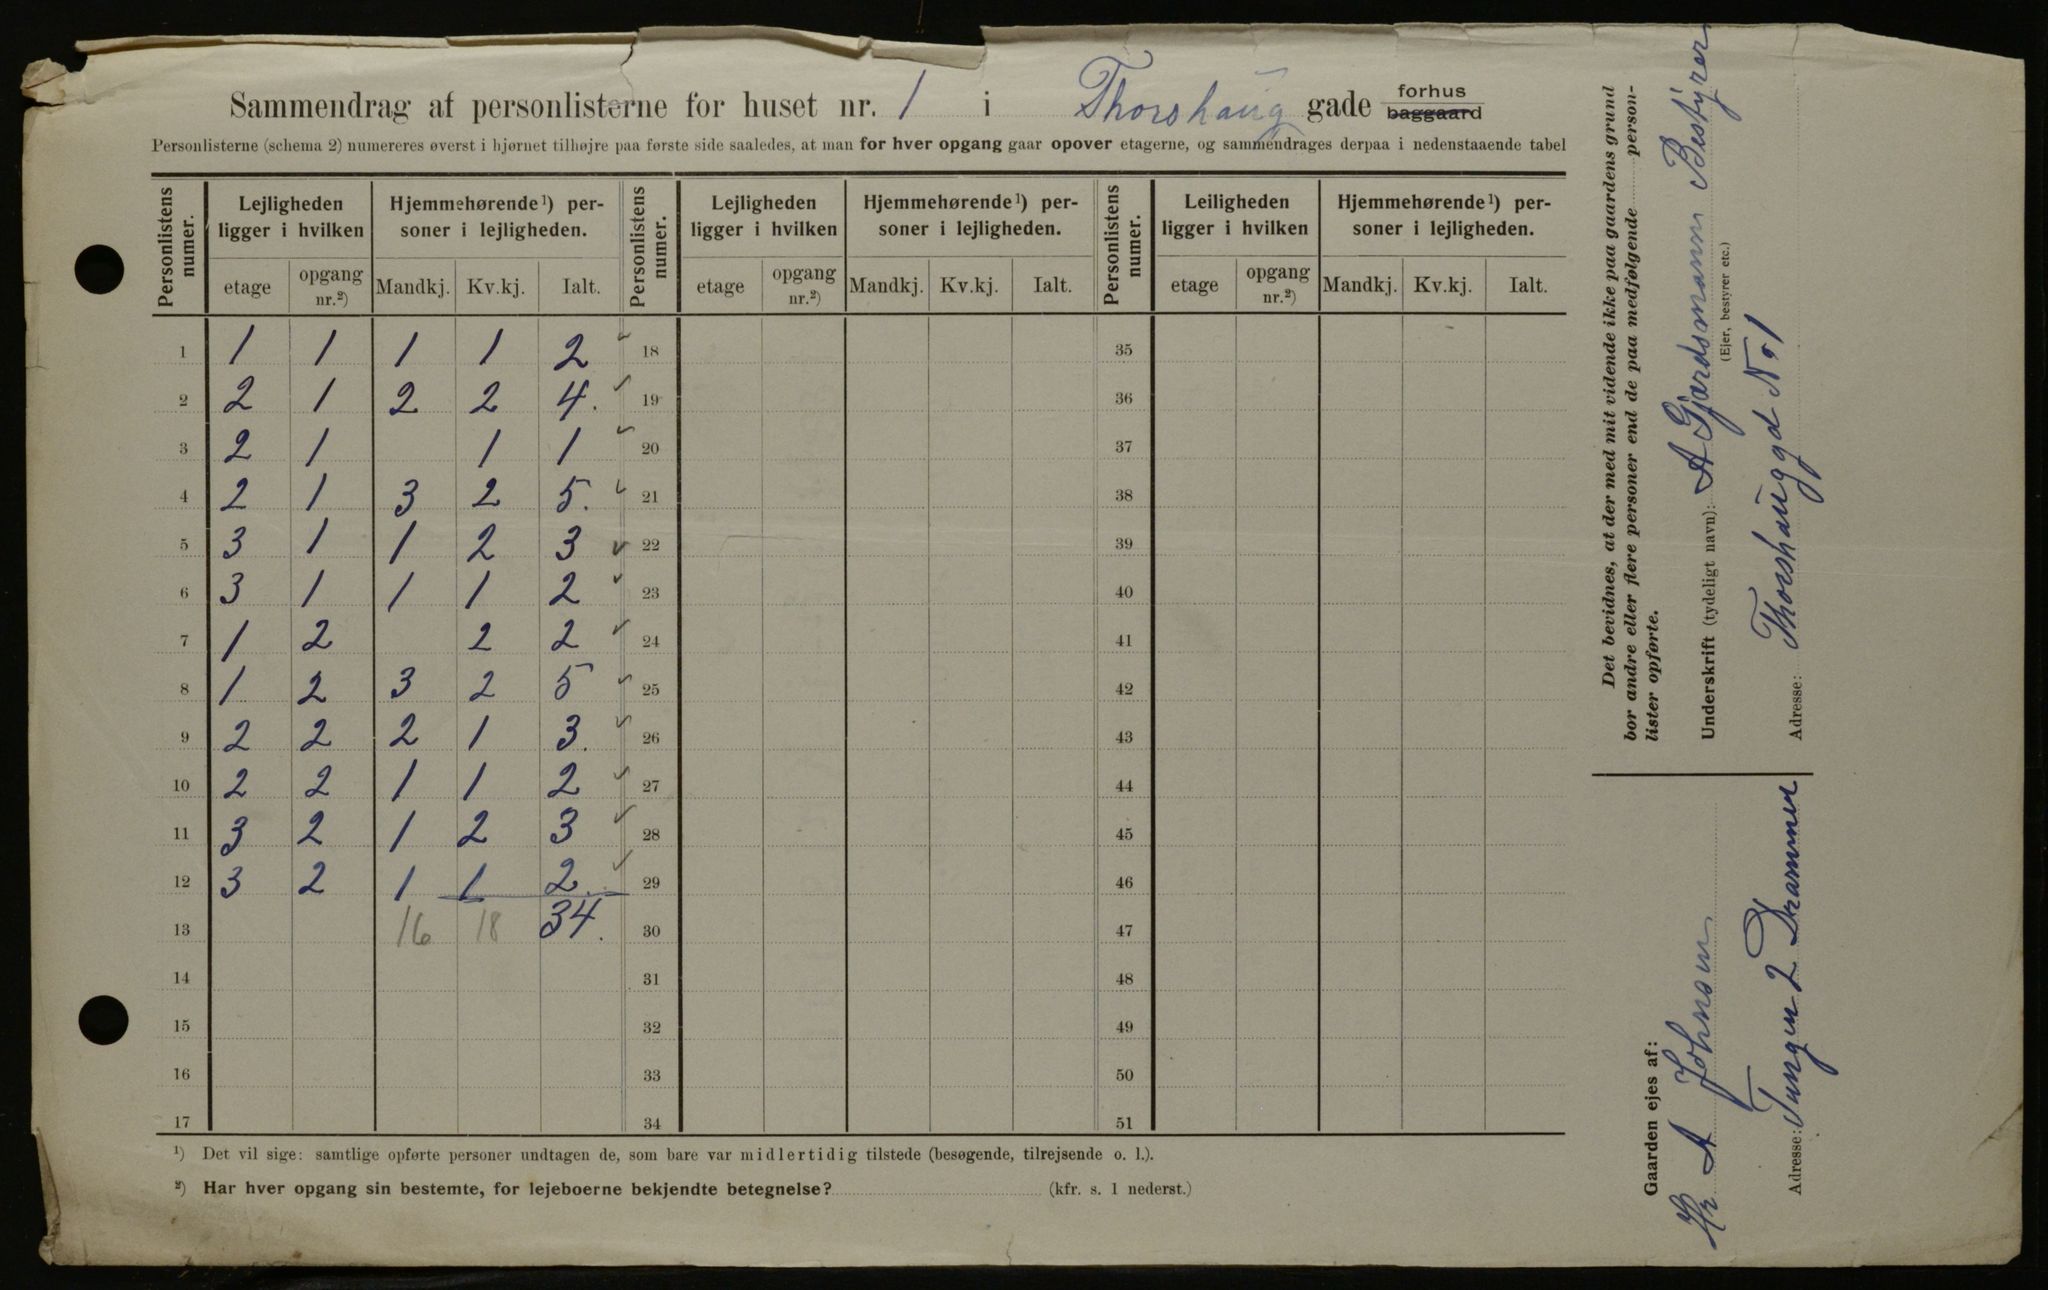 Sammendrag af personlisterne for huset nr. 1 i Thorshaug gade forhus baggaard
Personlisterne (schema 2) numereres øverst i hjørnet tilhøjre paa første side saaledes, at man for hver opgang gaar opover etagerne, og sammendrages derpaa i nedenstaaende tabel
Personlistens numer. Lejligheden ligger i hvilken Hjemmehørende¹) personer i lejligheden. Personlistens numer. Lejligheden ligger i hvilken Hjemmehørende¹) personer i lejligheden. Personlistens numer. Leiligheden ligger i hvilken Hjemmehørende¹) personer i lejligheden.
etage opgang nr.²) Mandkj. Kv.kj. Ialt. etage opgang nr.²) Mandkj. Kv.kj. Ialt. etage opgang nr.²) Mandkj. Kv.kj. Ialt.
1 1 1 1 1 2 ✓ 18 35
2 2 1 2 2 4. ✓ 19 36
3 2 1 1 1 ✓ 20 37
4 2 1 3 2 5. ✓ 21 38
5 3 1 1 2 3 ✓ 22 39
6 3 1 1 1 2 ✓ 23 40
7 1 2 2 2 ✓ 24 41
8 1 2 3 2 5 ✓ 25 42
9 2 2 2 1 3. ✓ 26 43
10 2 2 1 1 2 ✓ 27 44
11 3 2 1 2 3 ✓ 28 45
12 3 2 1 1 2. ✓ 29 46
13 16 18 34. 30 47
14 31 48
15 32 49
16 33 50
17 34 51
¹) Det vil sige: samtlige opførte personer undtagen de, som bare var midlertidig tilstede (besøgende, tilrejsende o. l.).
²) Har hver opgang sin bestemte, for lejeboerne bekjendte betegnelse? (kfr. s. 1 nederst.)
Det bevidnes, at der med mit vidende ikke paa gaardens grund
bor andre eller flere personer end de paa medfølgende person-
lister opførte.
Underskrift (tydeligt navn): A Gjærdsmann Bestÿrer
(Ejer, bestyrer etc.)
Adresse: Thorshauggd No 1
Gaarden ejes af:
Hr A Johnsen
Adresse: Tangen 2 Drammen